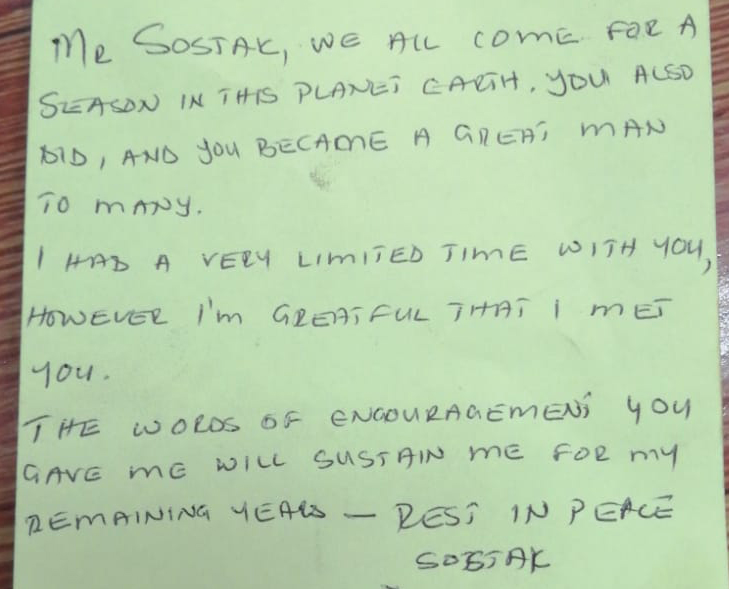 Mr SOSTAK, WE ALL COME FOR A
SEASON IN THIS PLANET EARTH. YOU ALSO
DID, AND YOU BECAME A GREAT MAN
TO MANY.
I HAD A VERY LIMITED TIME WITH YOU,
HOWEVER I'm GREATFUL THAT I MET
YOU.
THE WORDS OF ENCOURAGEMENT YOU
GAVE ME WILL SUSTAIN ME FOR MY
REMAINING YEARS — REST IN PEACE
SOSTAK